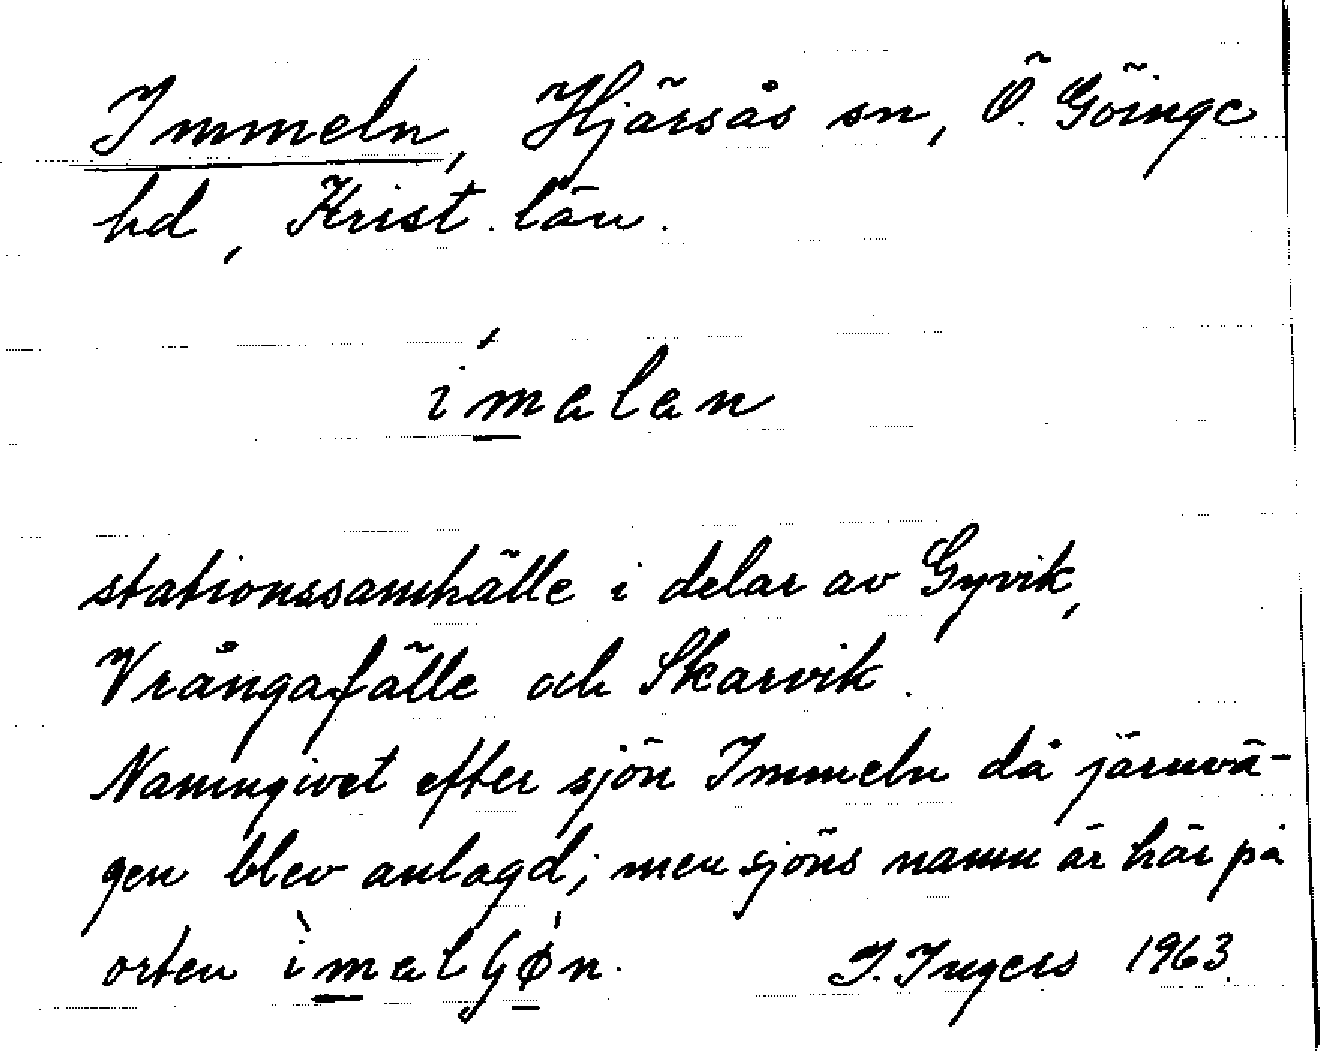 Immeln, Hjärsås sn, Ö. Göinge
hd, Krist. län.
ímalan
stationssamhälle i delar av Gyvik,
Vrångafälle och Skarvik.
Namngivet efter sjön Immeln då järnvä-
gen blev anlagd; men sjöns namn är här på
orten ìmalʃǿn. I. Ingers 1963.